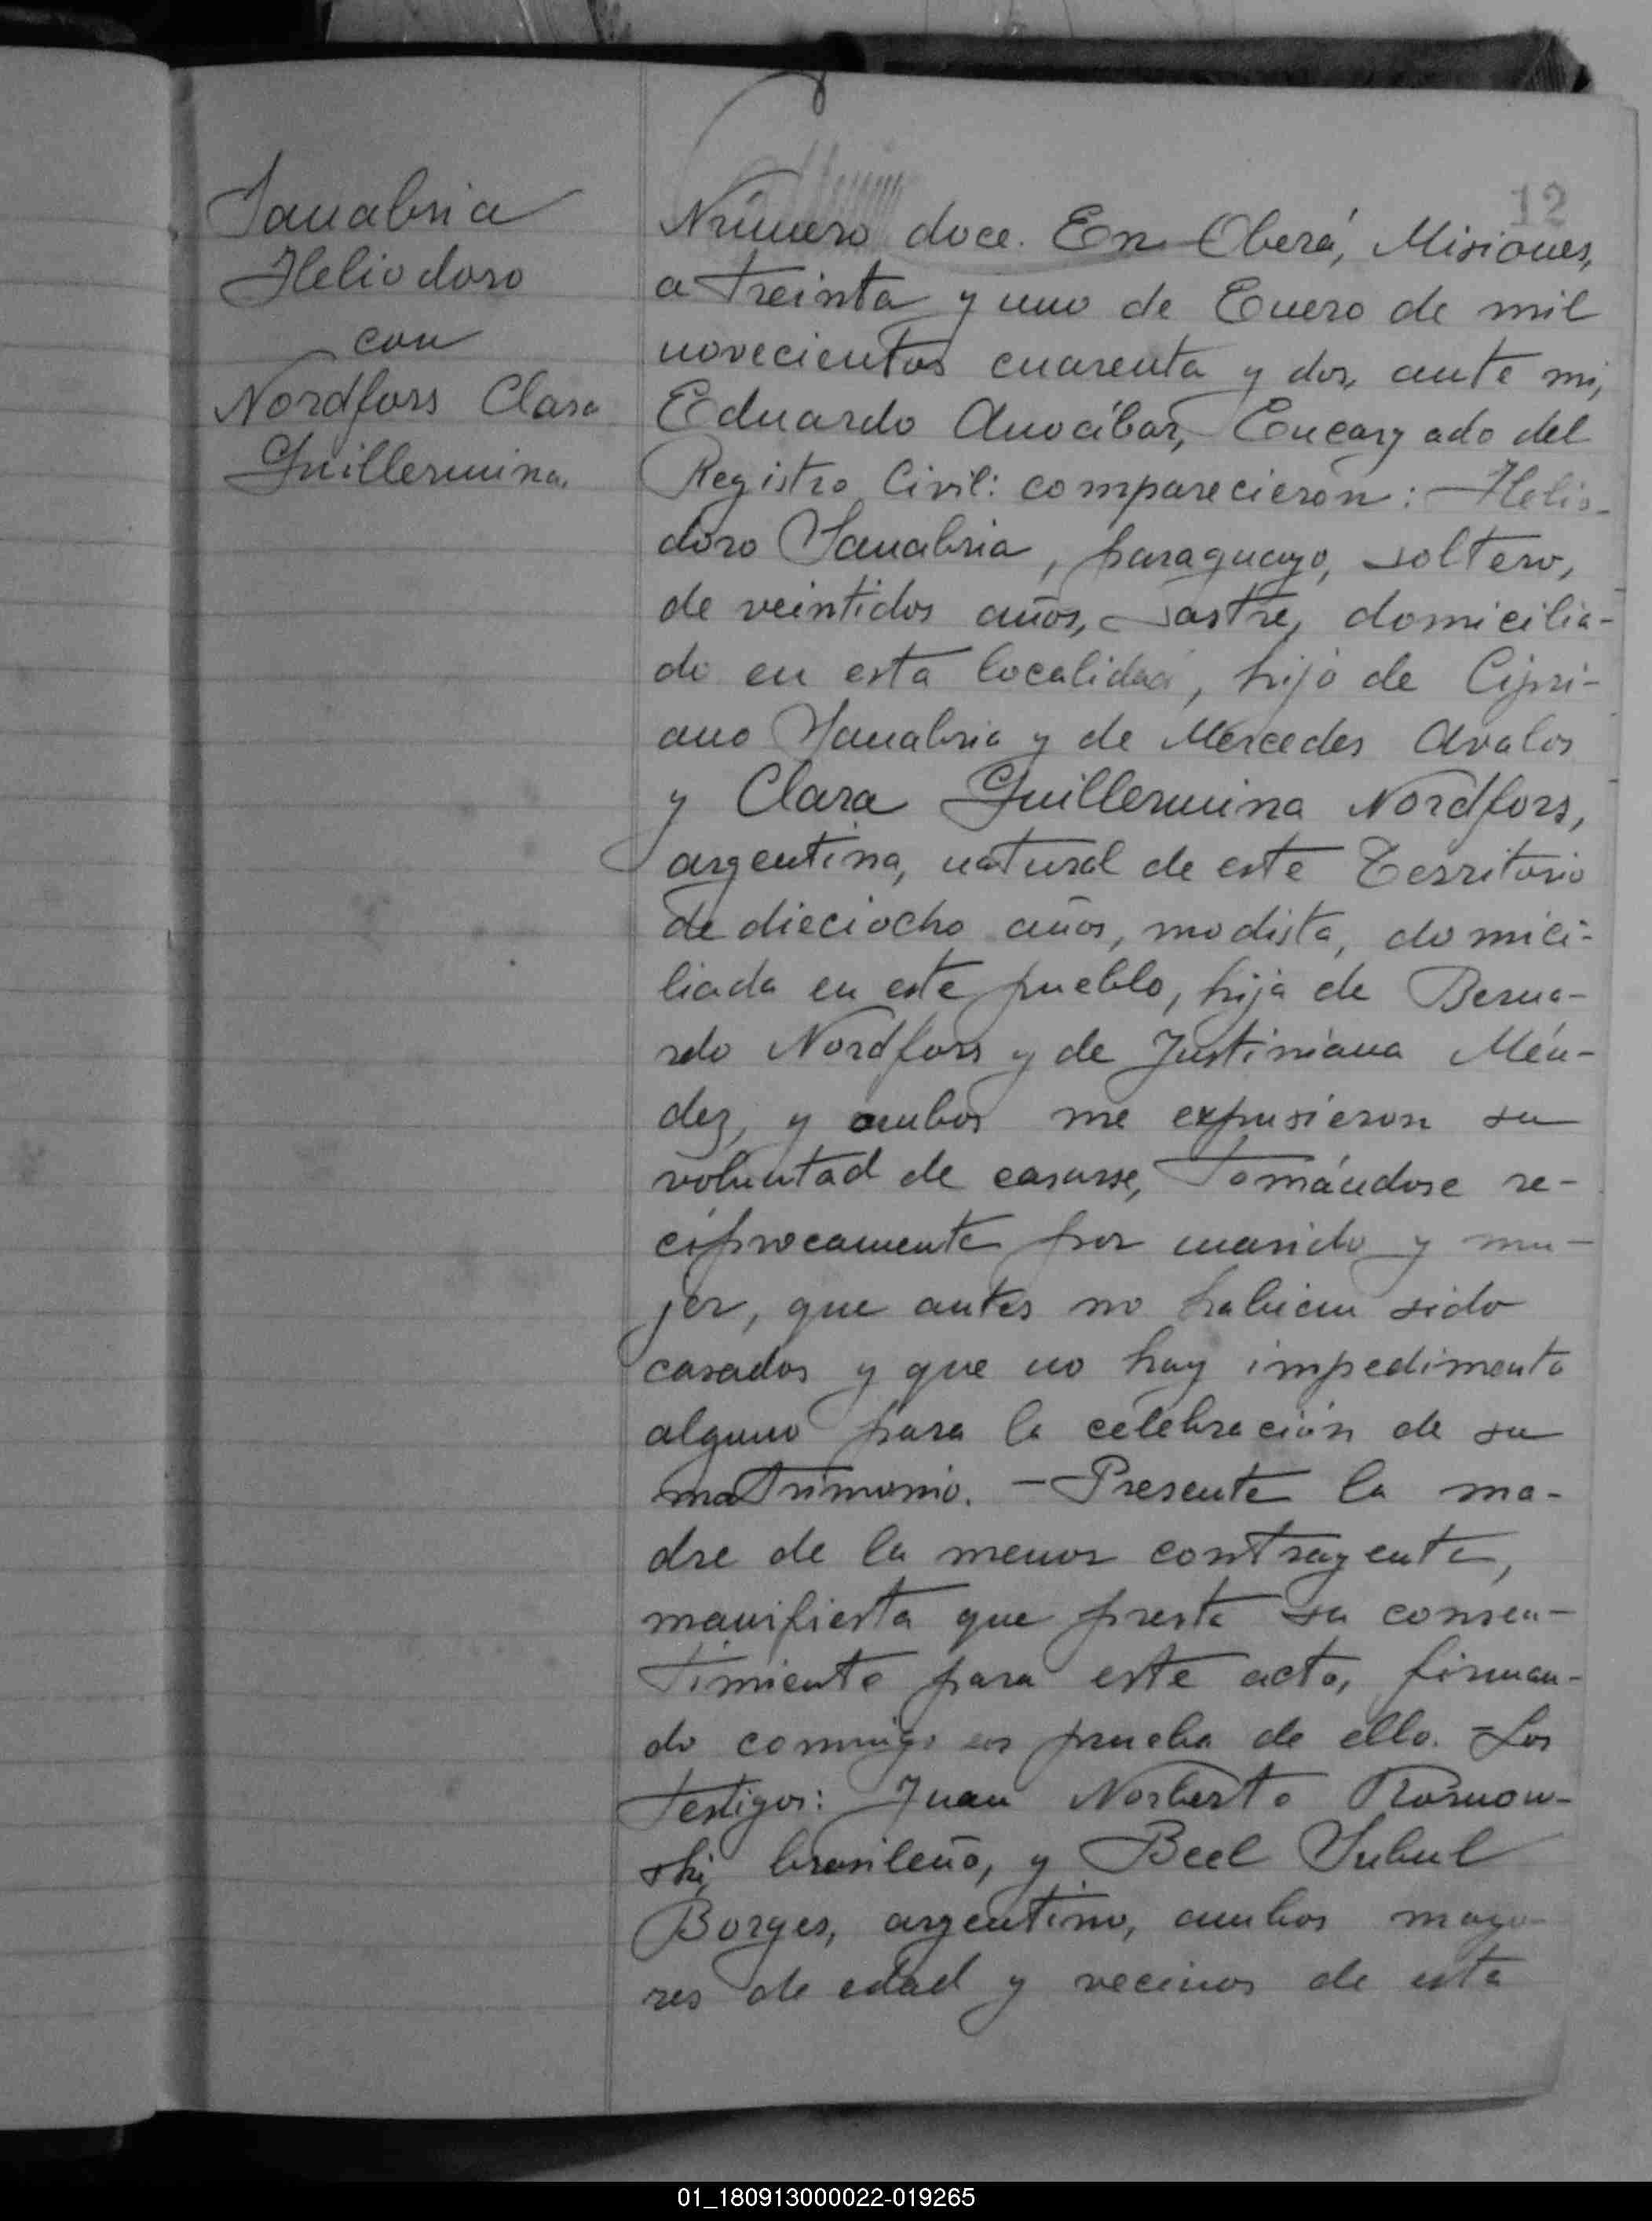 Sanabria
Heliodoro
con
Nordfors Clara
Guillermina.
12
Número doce. En Oberá, Misiones,
a treinta y uno de Enero de mil
novecientos cuarenta y dos, ante mi,
Eduardo Anocíbar, Encargado del
Registro Civil: comparecieron: Helio-
doro Sanabria, paraguayo, soltero,
de veintidos años, sastre, domicilia-
do en esta localidad, hijo de Cipri-
ano Sanabria y de Mercedes Avalos
y Clara Guillermina Nordfors,
argentina, natural de este Territorio
de dieciocho años, modista, domici-
liada en este pueblo, hija de Berna-
rdo Nordfors y de Justiniana Mén-
dez, y ambos me expusieron su
voluntad de casarse, tomándose re-
cíprocamente por marido y mu-
jer, que antes no habian sido
casados y que no hay impedimento
alguno para la celebración de su
matrimonio. - Presente la ma-
dre de la menor contrayente,
manifiesta que presta su consen-
timiento para este acto, firman-
do conmigo en prueba de ello. = Los
testigos: Juan Norberto
ski, brasileño, y Beel
Borges, argentino, ambos mayo-
res de edad y vecinos de esta
01_180913000022-019265